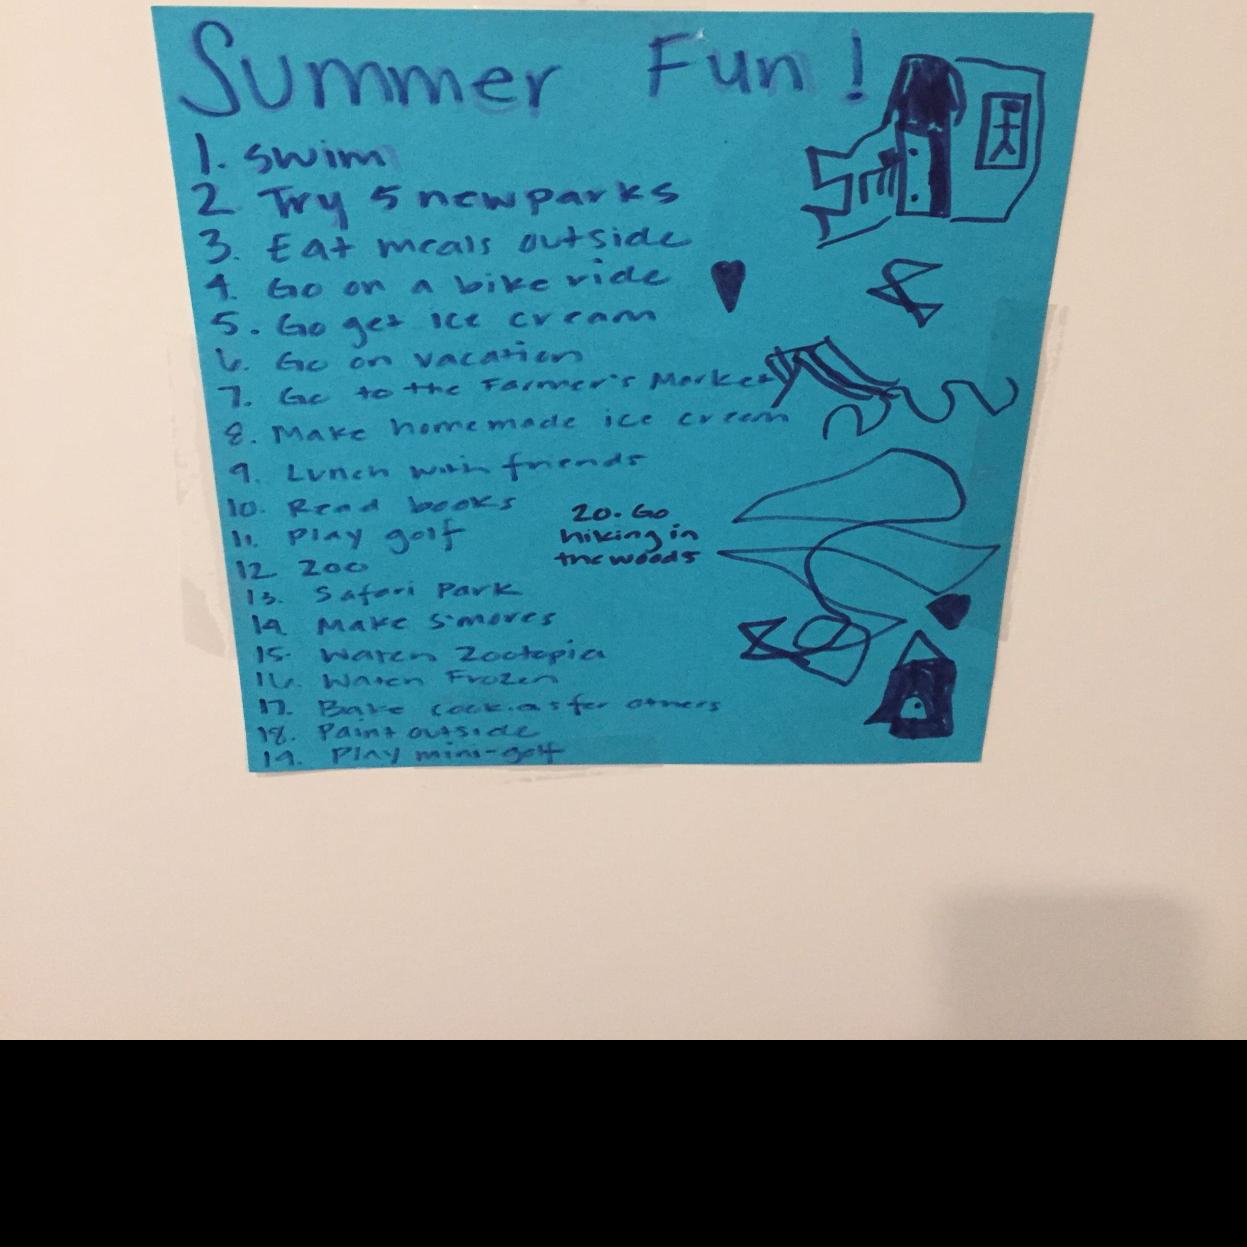 Summer Fun!
1. Swim
2 Try 5 new parks
3. Eat meals outside
4. Go on a bike ride
5. Go get ice cream
6. Go on vacation
7. Go to the Farmer's Market
8. Make homemade ice cream
9. Lunch with friends
10. Read books
11. Play golf
12 Zoo
13. Safari Park
14. Make S'mores
15. Watch Zootopia
16. Watch Frozen
17. Bake cookies for others
18. Paint outside
19. Play mini-golf
20. Go
hiking in
the woods